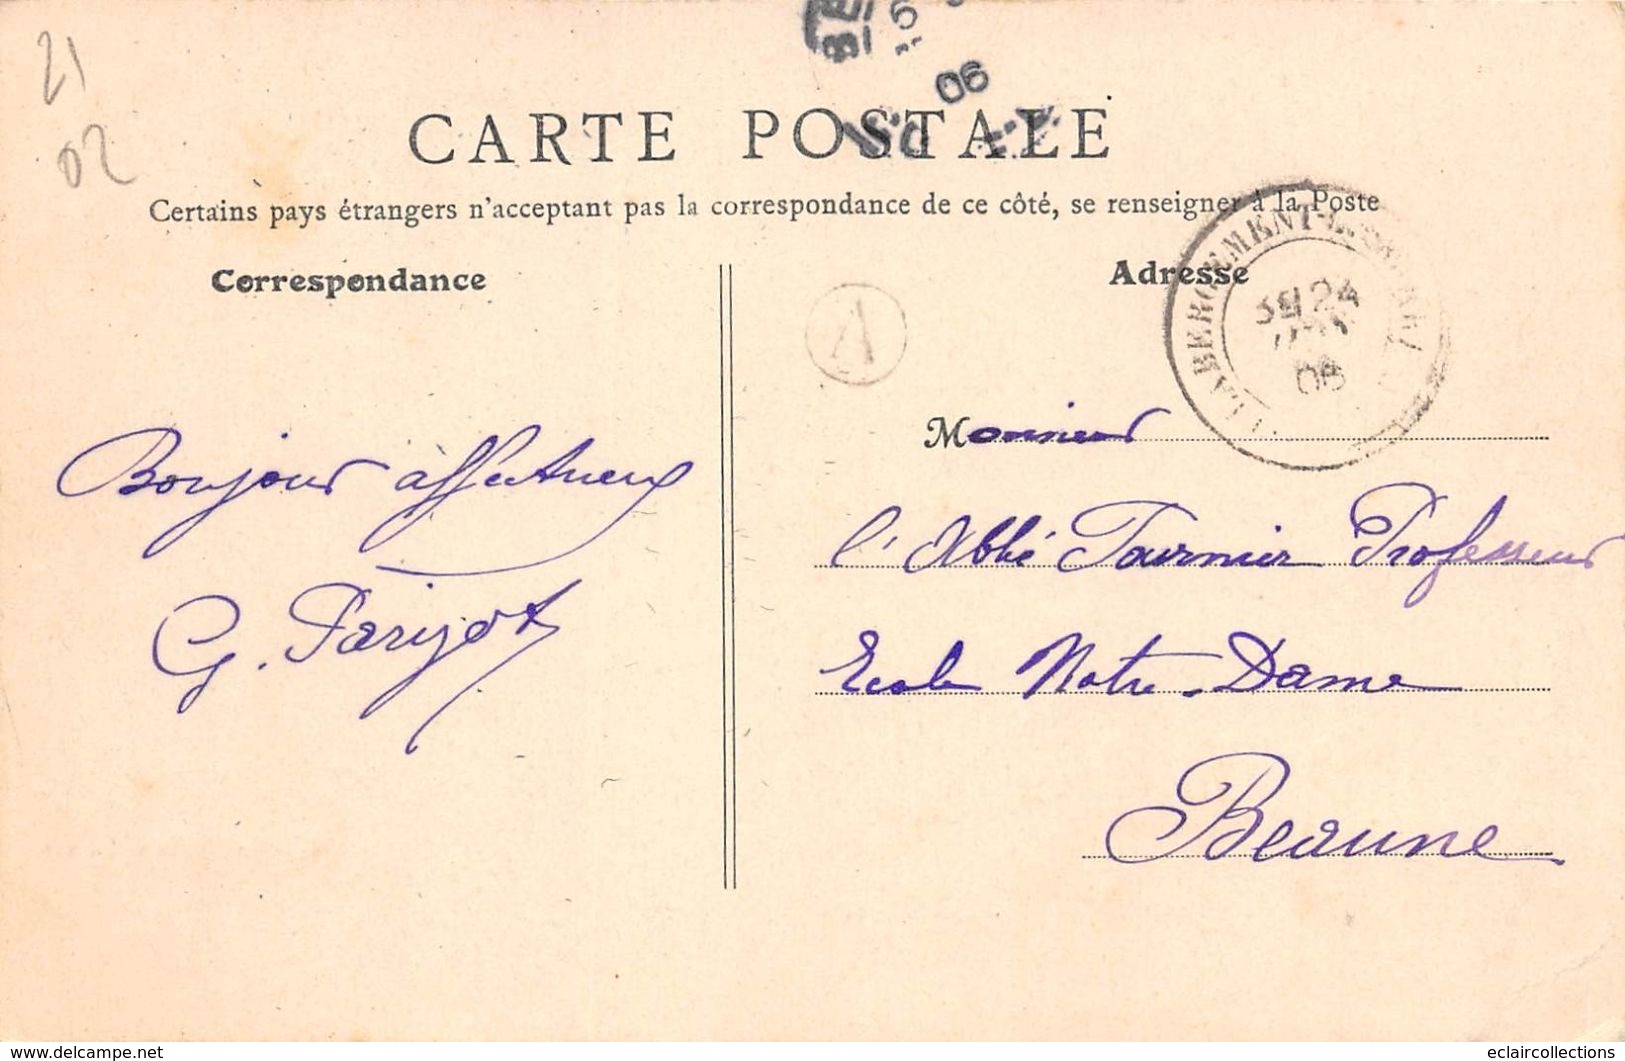 21
02
06
CARTE POSTALE
Certains pays étrangers n'acceptant pas la correspondance de ce côté, se renseigner à la Poste
Correspondance
Adresse
LABERGEMENT-
24
06
A
Monsieur
Bonjour affectueux
l'Abbé Tournier Professeur
G. Parizot
Ecole Notre-Dame
Beaune
www.delcampe.net
eclaircollections